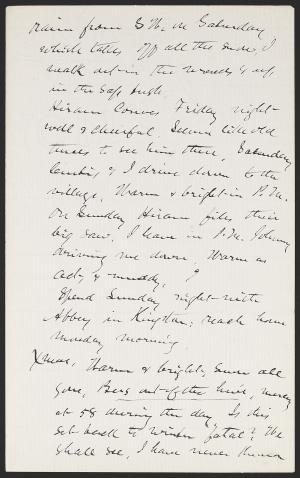 rain from S.W. on Saturday
which takes off all the snow, I
walk out in the woods & up
in the sap bush.
Hiram comes Friday night-
well & cheerful. Seems like old
times to see him there, Saturday
he & I drive down to the
village, Warm & bright in P.M.
On Sunday Hiram files their
big saw. I leave in P.M. Johnny
driving me down, Warm as
& muddy, ?
Spend Sunday night with
Abbey in Kingston; reach home
Monday morning.
Xmas, Warm & bright, snow all
gone, Bees out of the hive, mercury
at 58 during the day. Is this
set-back to winter "fatal"? We
shall see, I have never known